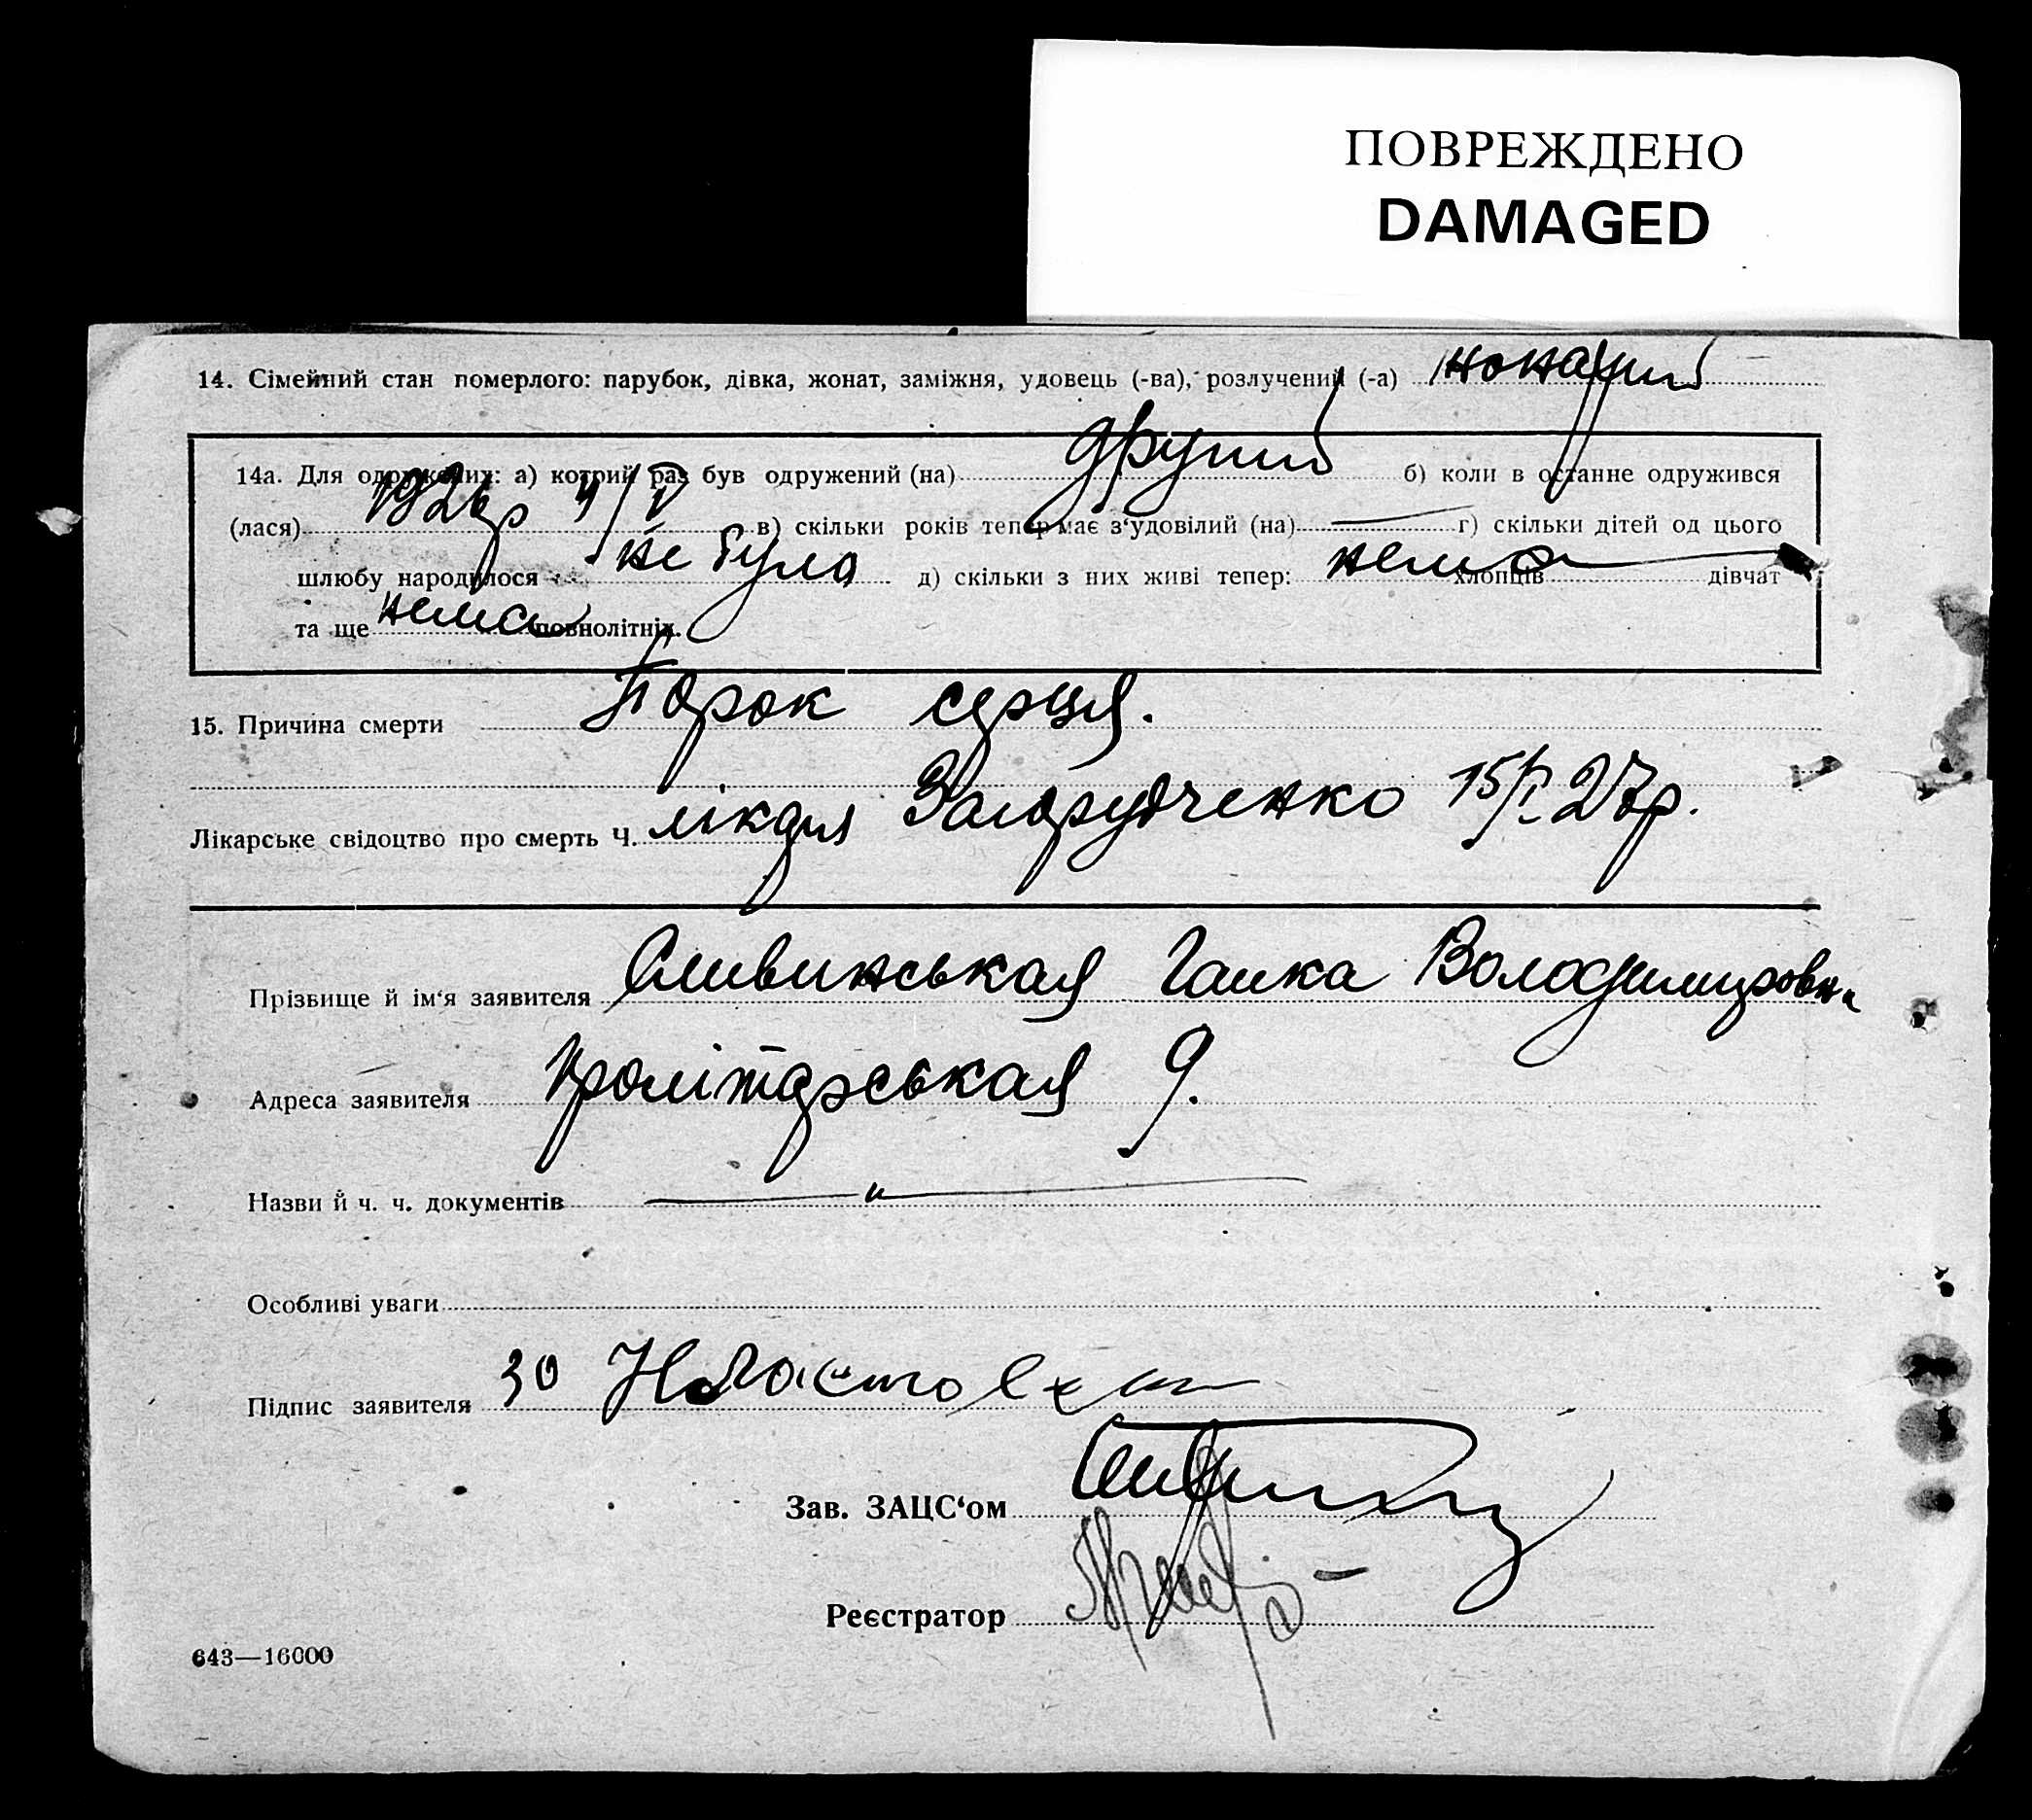 ПОВРЕЖДЕНО
DAMAGED
14. Сімейний стан померлого: парубок, дівка, жонат, заміжня, удовець (-ва), розлучений (-а)
14а. Для одружених: а) котрий раз був одружений (на) другий б) коли в останне одружився
(лася) 1926р 4/V в) скільки років тепер має з‘удовілий (на) — г) скільки дітей од цього
шлюбу народилося не було д) скільки з них живі тепер: нема хлопців дівчат
та ще нема повнолітніх.
15. Причина смерти Порок серця.
Лікарське свідоцтво про смерть Ч. 15/I 27р.
Прізвище й ім‘я заявителя Сливинськая Ганка Володимировна
Адреса заявителя Пролітарськая 9.
Назви й ч. ч. документів — " —
Особливі уваги
Підпис заявителя 30
Зав. ЗАЦС‘ом
Реєстратор
643—16000